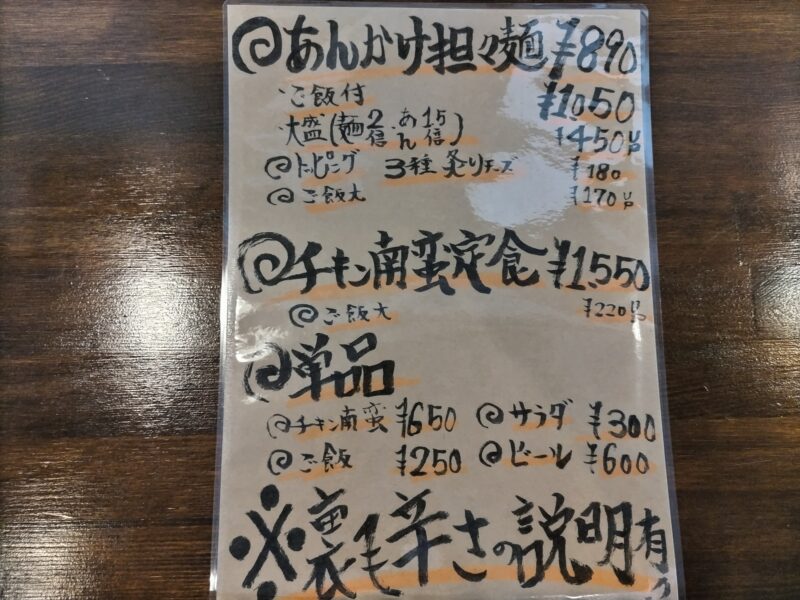 あんかけ担々麺 ¥890
・ご飯付 ¥1.050
・大盛(麺2倍 あん1.5倍) ¥450up
トッピング 3種炙りチーズ ¥180
ご飯大 ¥170up
チキン南蛮定食 ¥1.550
ご飯大 ¥220up
単品
チキン南蛮 ¥650 サラダ ¥300
ご飯 ¥250 ビール ¥600
※裏も辛さの説明有り